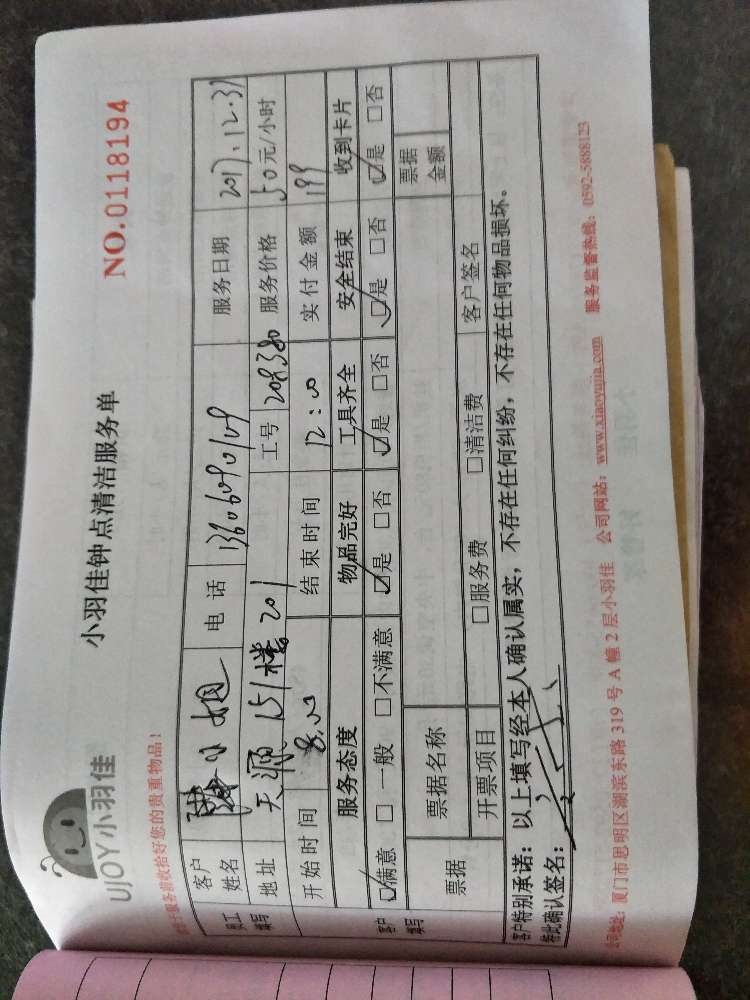 UJOY小羽佳
小羽佳钟点清洁服务单
NO.0118194
请于服务前收拾好您的贵重物品!
员工填写
客户姓名 陈小姐 电话 13606090109 服务日期 2017.12.31
地址 天湖151楼201 工号 208380 服务价格 50元/小时
开始时间 8:00 结束时间 12:00 实付金额 199
客户填写
服务态度 物品完好 工具齐全 安全结束 收到卡片
☑满意 □一般 □不满意 ☑是 □否 ☑是 □否 ☑是 □否 ☑是 □否
票据 票据名称 票据金额
开票项目 □服务费 □清洁费 客户签名
客户特别承诺:以上填写经本人确认属实,不存在任何纠纷,不存在任何物品损坏。
特此确认签名:
公司地址:厦门市思明区湖滨东路319号A幢2层小羽佳 公司网站:www.xiaoyujia.com 服务监督热线:0592-5888123